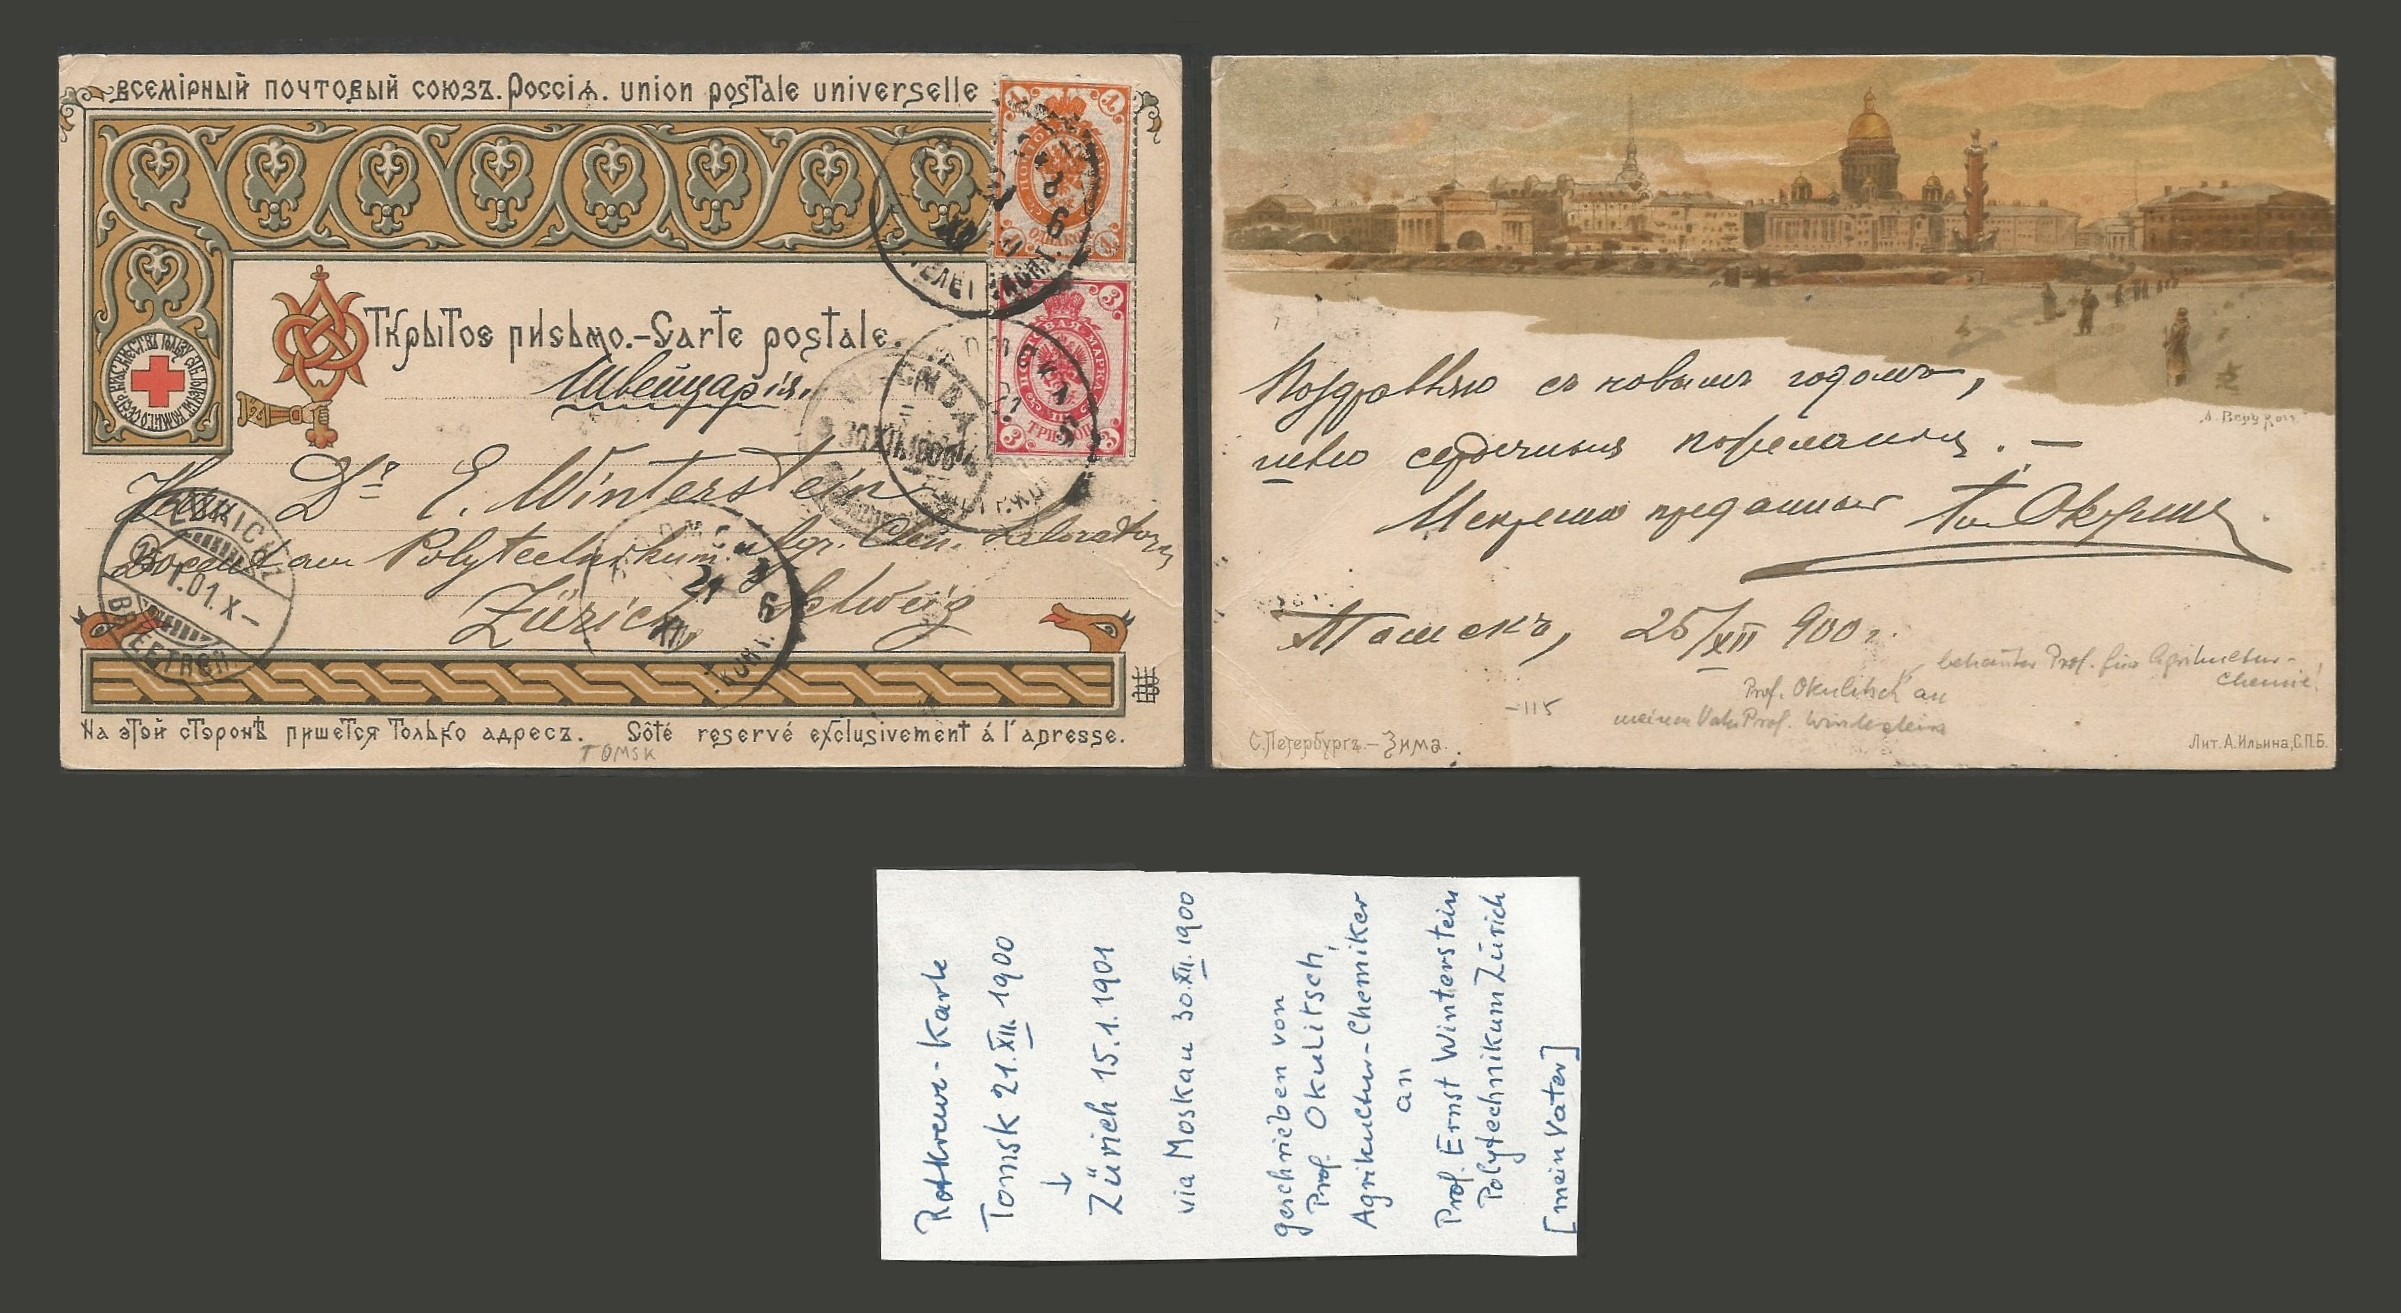 всемірный почтовый союзъ. Россія. union postale universelle
Открытое письмо.-Carte postale.
Швейцарія.
Herrn Dr. E. Winterstein
Docent am Polytechnikum. agr. Chem. Laboratorium
Zürich Schweiz
ПОЧТОВАЯ МАРКА
1 1 1 1
ПОЧТОВАЯ МАРКА
3 3 3
ТРИ КОП.
30 XII 1900
ZÜRICH
I.01.X-
BRIEFTRÄGER
21
XII
6
На этой сторонѣ пишется только адресъ. Côté reservé exclusivement á l'adresse.
TOMSK
Поздравляю съ новымъ годомъ,
шлю сердечныя пожеланія. —
Искренно преданный
Томскъ, 25/XII 900 г.
bekannter Prof. für Agrikultur-
chemie!
Prof. Okulitsch an
meinen Vater Prof. Winterstein
-115
С.Петербургъ.-Зима.
Лит. А.Ильина, С.П.Б.
Rotkreuz-Karte
Tomsk 21.XII.1900
↓
Zürich 15.1.1901
via Moskau 30.XII.1900
geschrieben von
Prof. Okulitsch,
Agrikultur-Chemiker
an
Prof. Ernst Winterstein
Polytechnikum Zürich
[mein Vater]